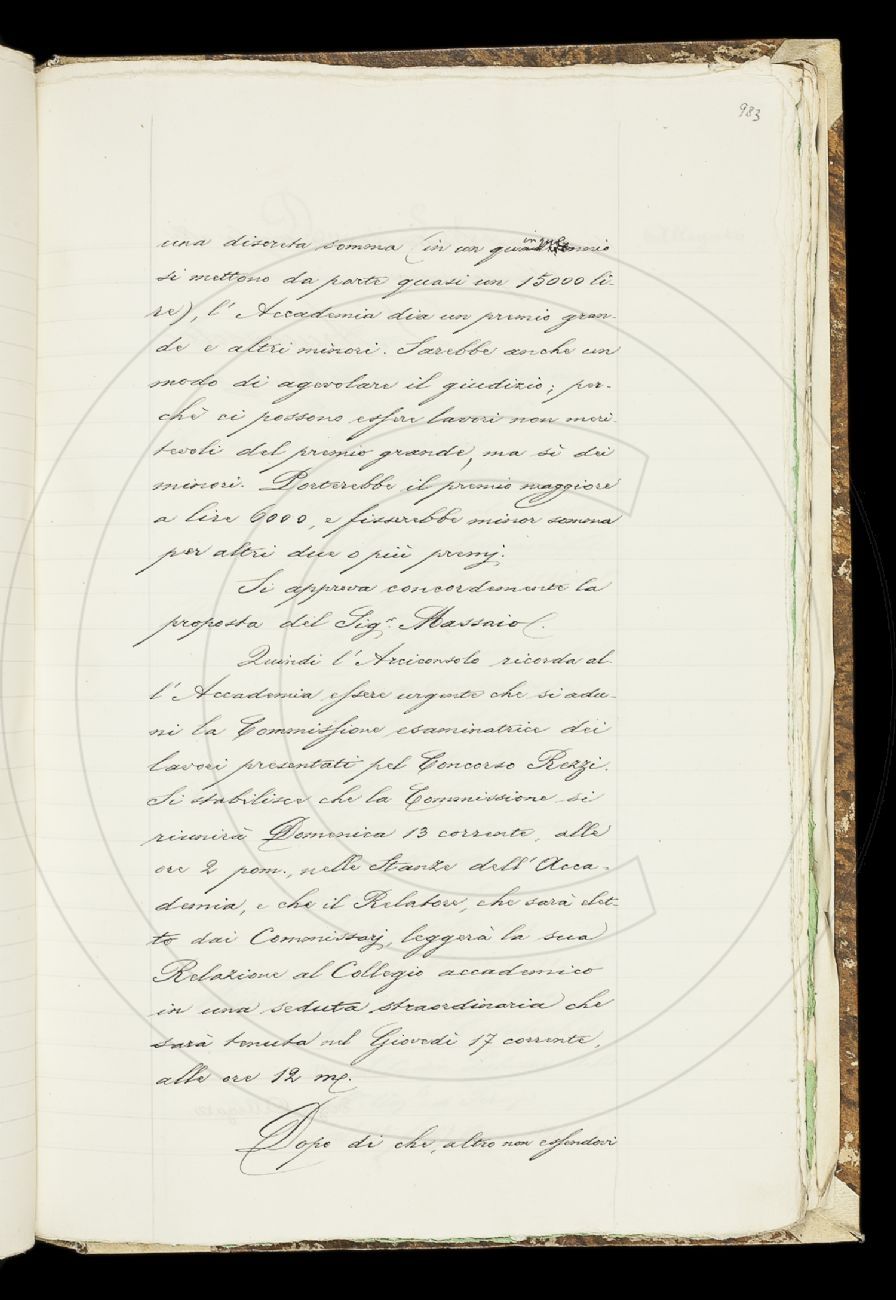 983
una discreta somma (in un quinquennio
si mettono da parte quasi un 15000 li-
re), l' Accademia dia un premio gran-
de e altri minori. Sarebbe anche un
modo di agevolare il giudizio; per-
chè ci possono essere lavori non meri-
tevoli del premio grande, ma sì dei
minori. Porterebbe il premio maggiore
a lire 6000, e fisserebbe minor somma
per altri due o più premj.
Si approva concordemente la
proposta del Sigr. Massaio.
Quindi l' Arciconsolo ricorda al-
l' Accademia essere urgente che si adu-
ni la Commissione esaminatrice dei
lavori presentati pel Concorso Rezzi.
Si stabilisce che la Commissione si
riunirà Domenica 13 corrente, alle
ore 2 pom., nelle Stanze dell' Acca-
demia, e che il Relatore, che sarà elet-
to dai Commissarj, leggerà la sua
Relazione al Collegio accademico
in una seduta straordinaria che
sarà tenuta nel Giovedì 17 corrente,
alle ore 12 m.
Dopo di che, altro non essendovi